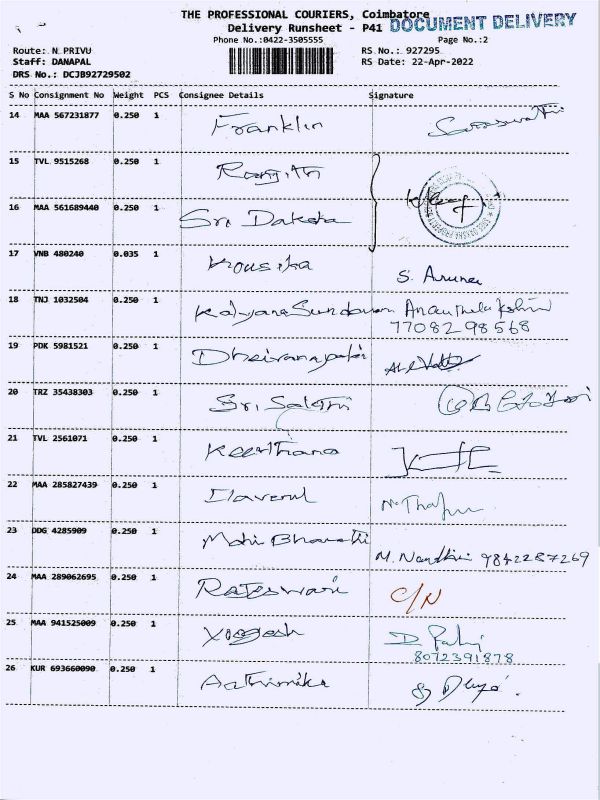 THE PROFESSIONAL COURIERS, Coimbatore
Delivery Runsheet - P41 DOCUMENT DELIVERY
Phone No.:0422-3505555 Page No.:2
Route: N PRIVU RS No.: 927295
Staff: DANAPAL RS Date: 22-Apr-2022
DRS No.: DCJB92729502
S No Consignment No Weight PCS Consignee Details Signature
14 MAA 567231877 0.250 1 Franklin
15 TVL 9515268 0.250 1 Ranjith
16 MAA 561689440 0.250 1 Sri Daksha
17 VNB 480240 0.035 1 Kousika S. Aruna
18 TNJ 1032504 0.250 1 Kalyana Sundaram Ananthelakshmi
7708298568
19 PDK 5981521 0.250 1
20 TRZ 35438303 0.250 1 Sri Sakthi
21 TVL 2561071 0.250 1 Keerthana
22 MAA 285827439 0.250 1
23 DDG 4285909 0.250 1 Mohi Bharathi M. Nandhini 9842287269
24 MAA 289062695 0.250 1 Rajeswari C/N
25 MAA 941525009 0.250 1 Yogesh
8072391878
26 KUR 693660090 0.250 1 Aathimika